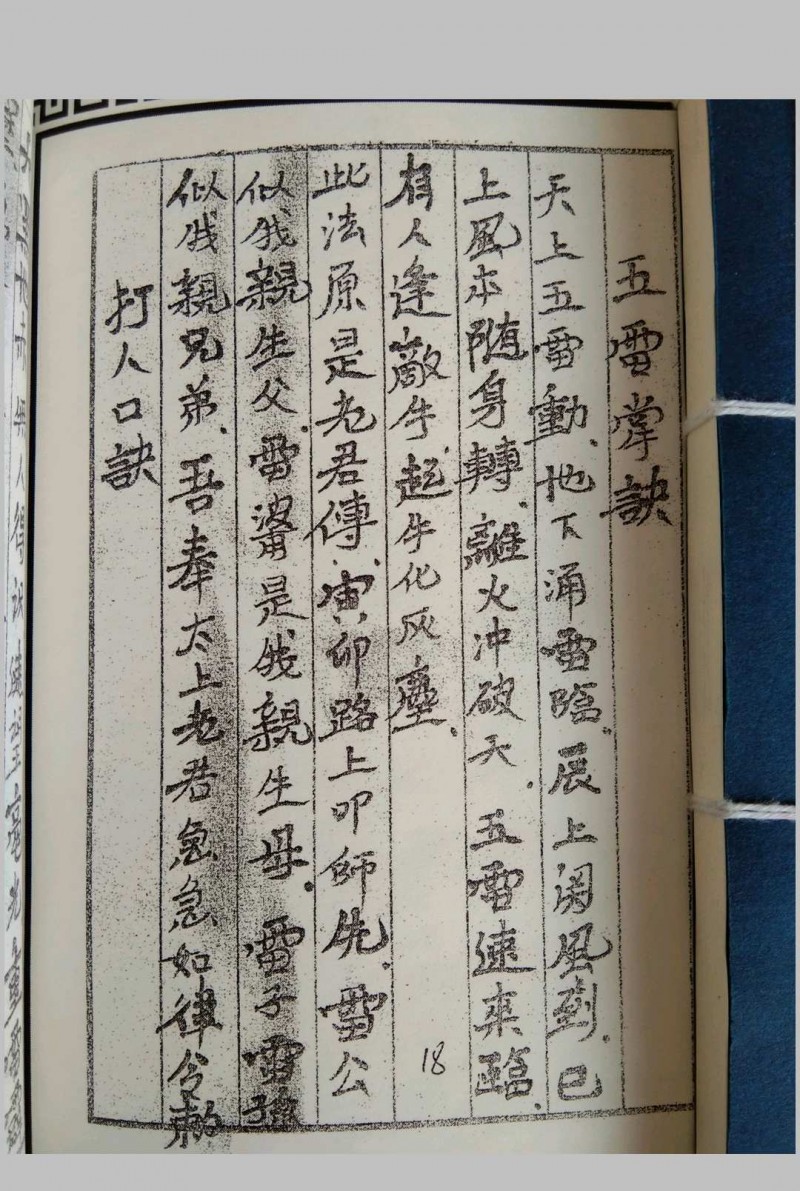 五雷掌訣
天上五雷動、地下涌雷臨、辰上闵風到、巳
上風本随身轉、離火冲破天、五雷速来臨、
有人逢敵牛起牛化灰塵、
此法原是老君傳、寅卯路上叩師先、雷公
似我親生父、雷婆是我親生母、雷子雷孫
似我親兄弟、吾奉太上老君急急如律令勅
打人口訣
18